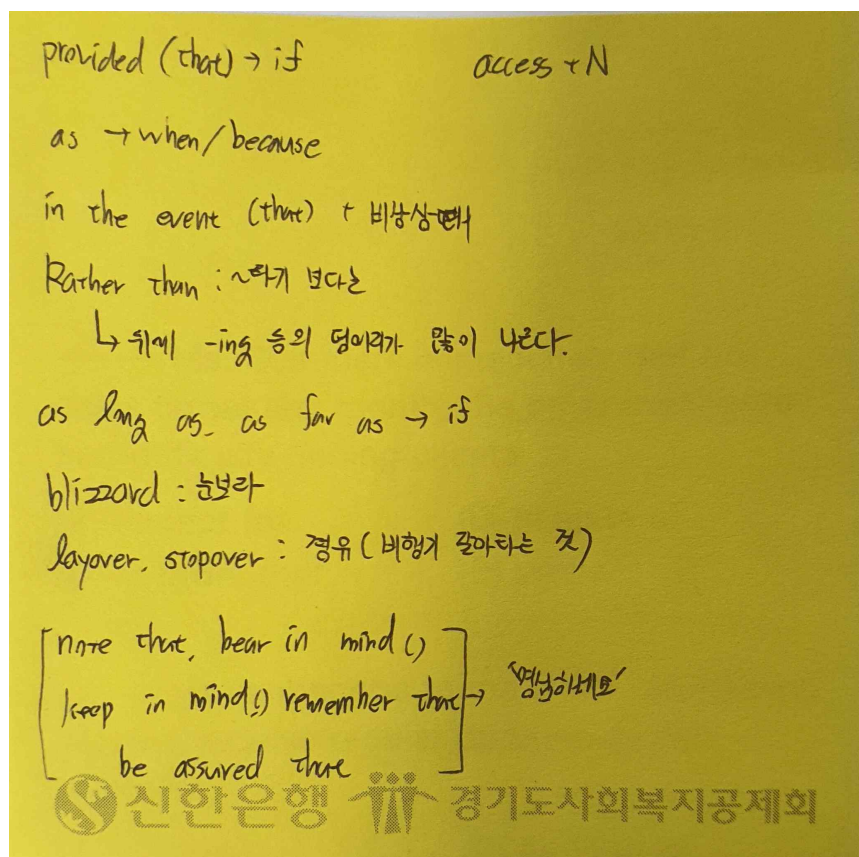 provided (that) → if
access + N
as → when/because
in the event (that) + 비상상태
Rather than : ~하기 보다는
↳ 뒤에 -ing 등의 덩어리가 많이 나온다.
as long as, as far as → if
blizzard : 눈보라
layover, stopover : 경유 (비행기 갈아타는 것)
note that, bear in mind ()
keep in mind () remember that → '명심하세요'
be assured that
신한은행 경기도사회복지공제회